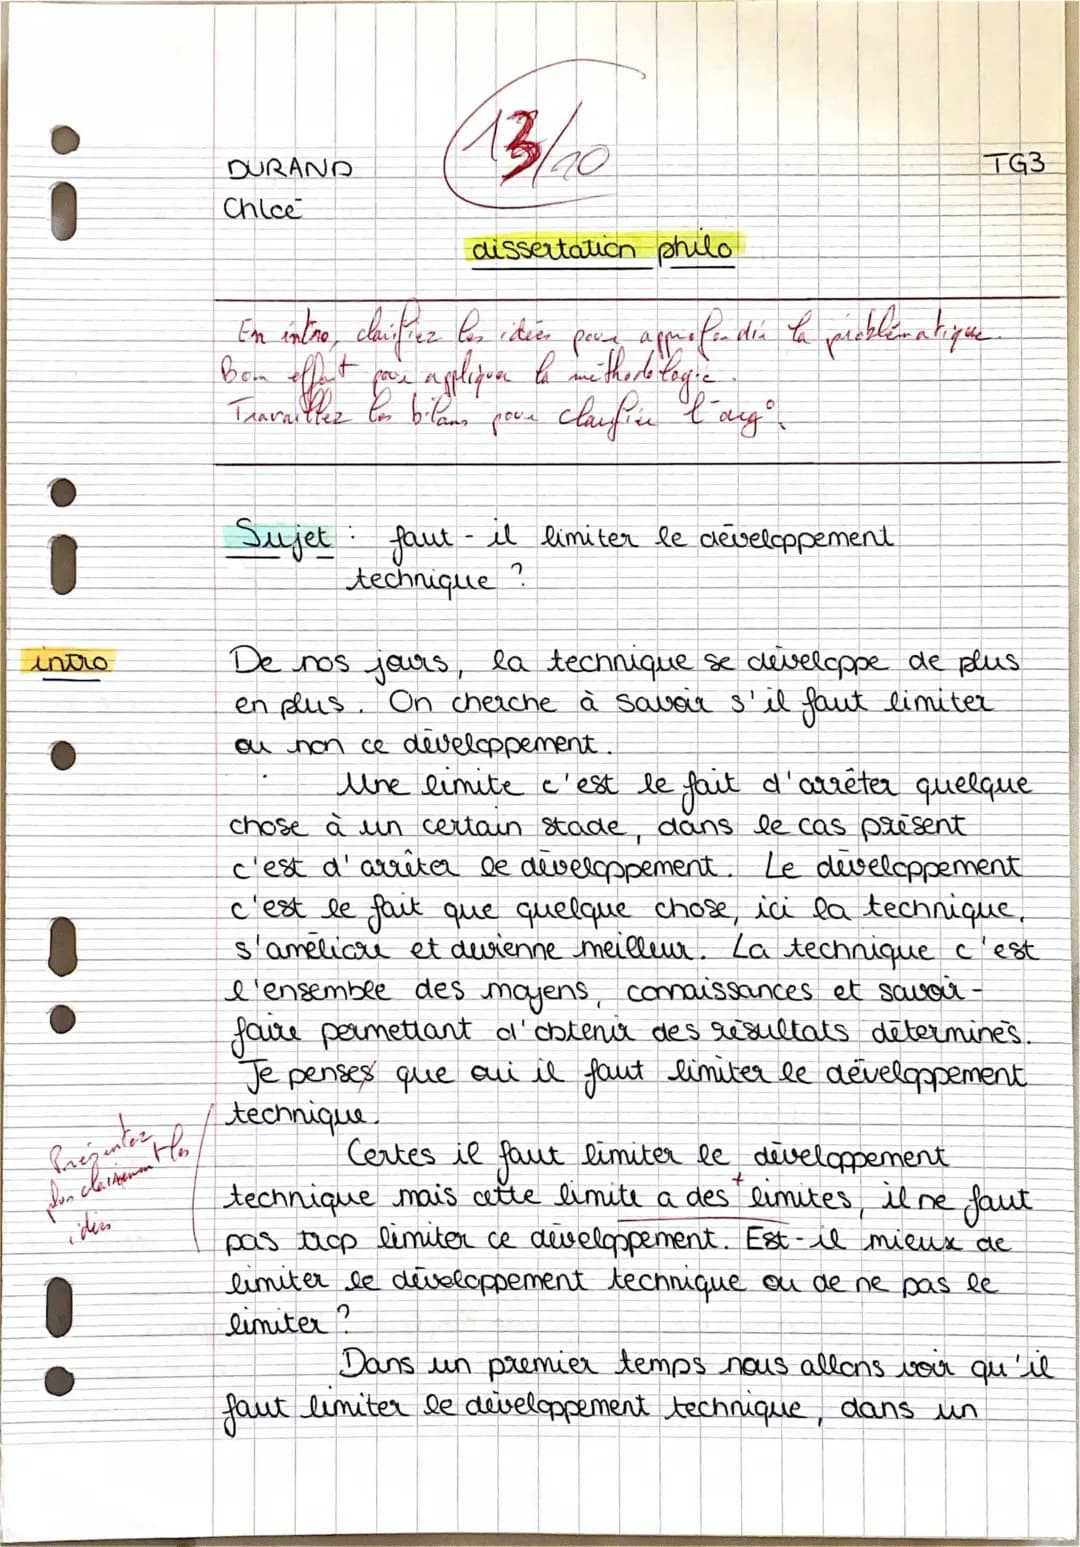 13/20
DURAND
TG3
Chloé
dissertation philo
En intro, clarifiez les idées pour approfondir la problématique.
Bon effort pour appliquer la méthodologie.
Travaillez les bilans pour clarifier l'arg°.
Sujet : faut-il limiter le développement
technique ?
intro
De nos jours, la technique se développe de plus
en plus. On cherche à savoir s'il faut limiter
ou non ce développement.
Une limite c'est le fait d'arrêter quelque
chose à un certain stade, dans le cas présent
c'est d'arrêter le développement. Le développement
c'est le fait que quelque chose, ici la technique,
s'améliore et devienne meilleur. La technique c'est
l'ensemble des moyens, connaissances et savoir-
faire permettant d'obtenir des résultats déterminés.
Je penses que oui il faut limiter le développement
technique.
Présenter
plus clairement les
idées
Certes il faut limiter le développement
technique mais cette limite a des + limites, il ne faut
pas trop limiter ce développement. Est-il mieux de
limiter le développement technique ou de ne pas le
limiter ?
Dans un premier temps nous allons voir qu'il
faut limiter le développement technique, dans un